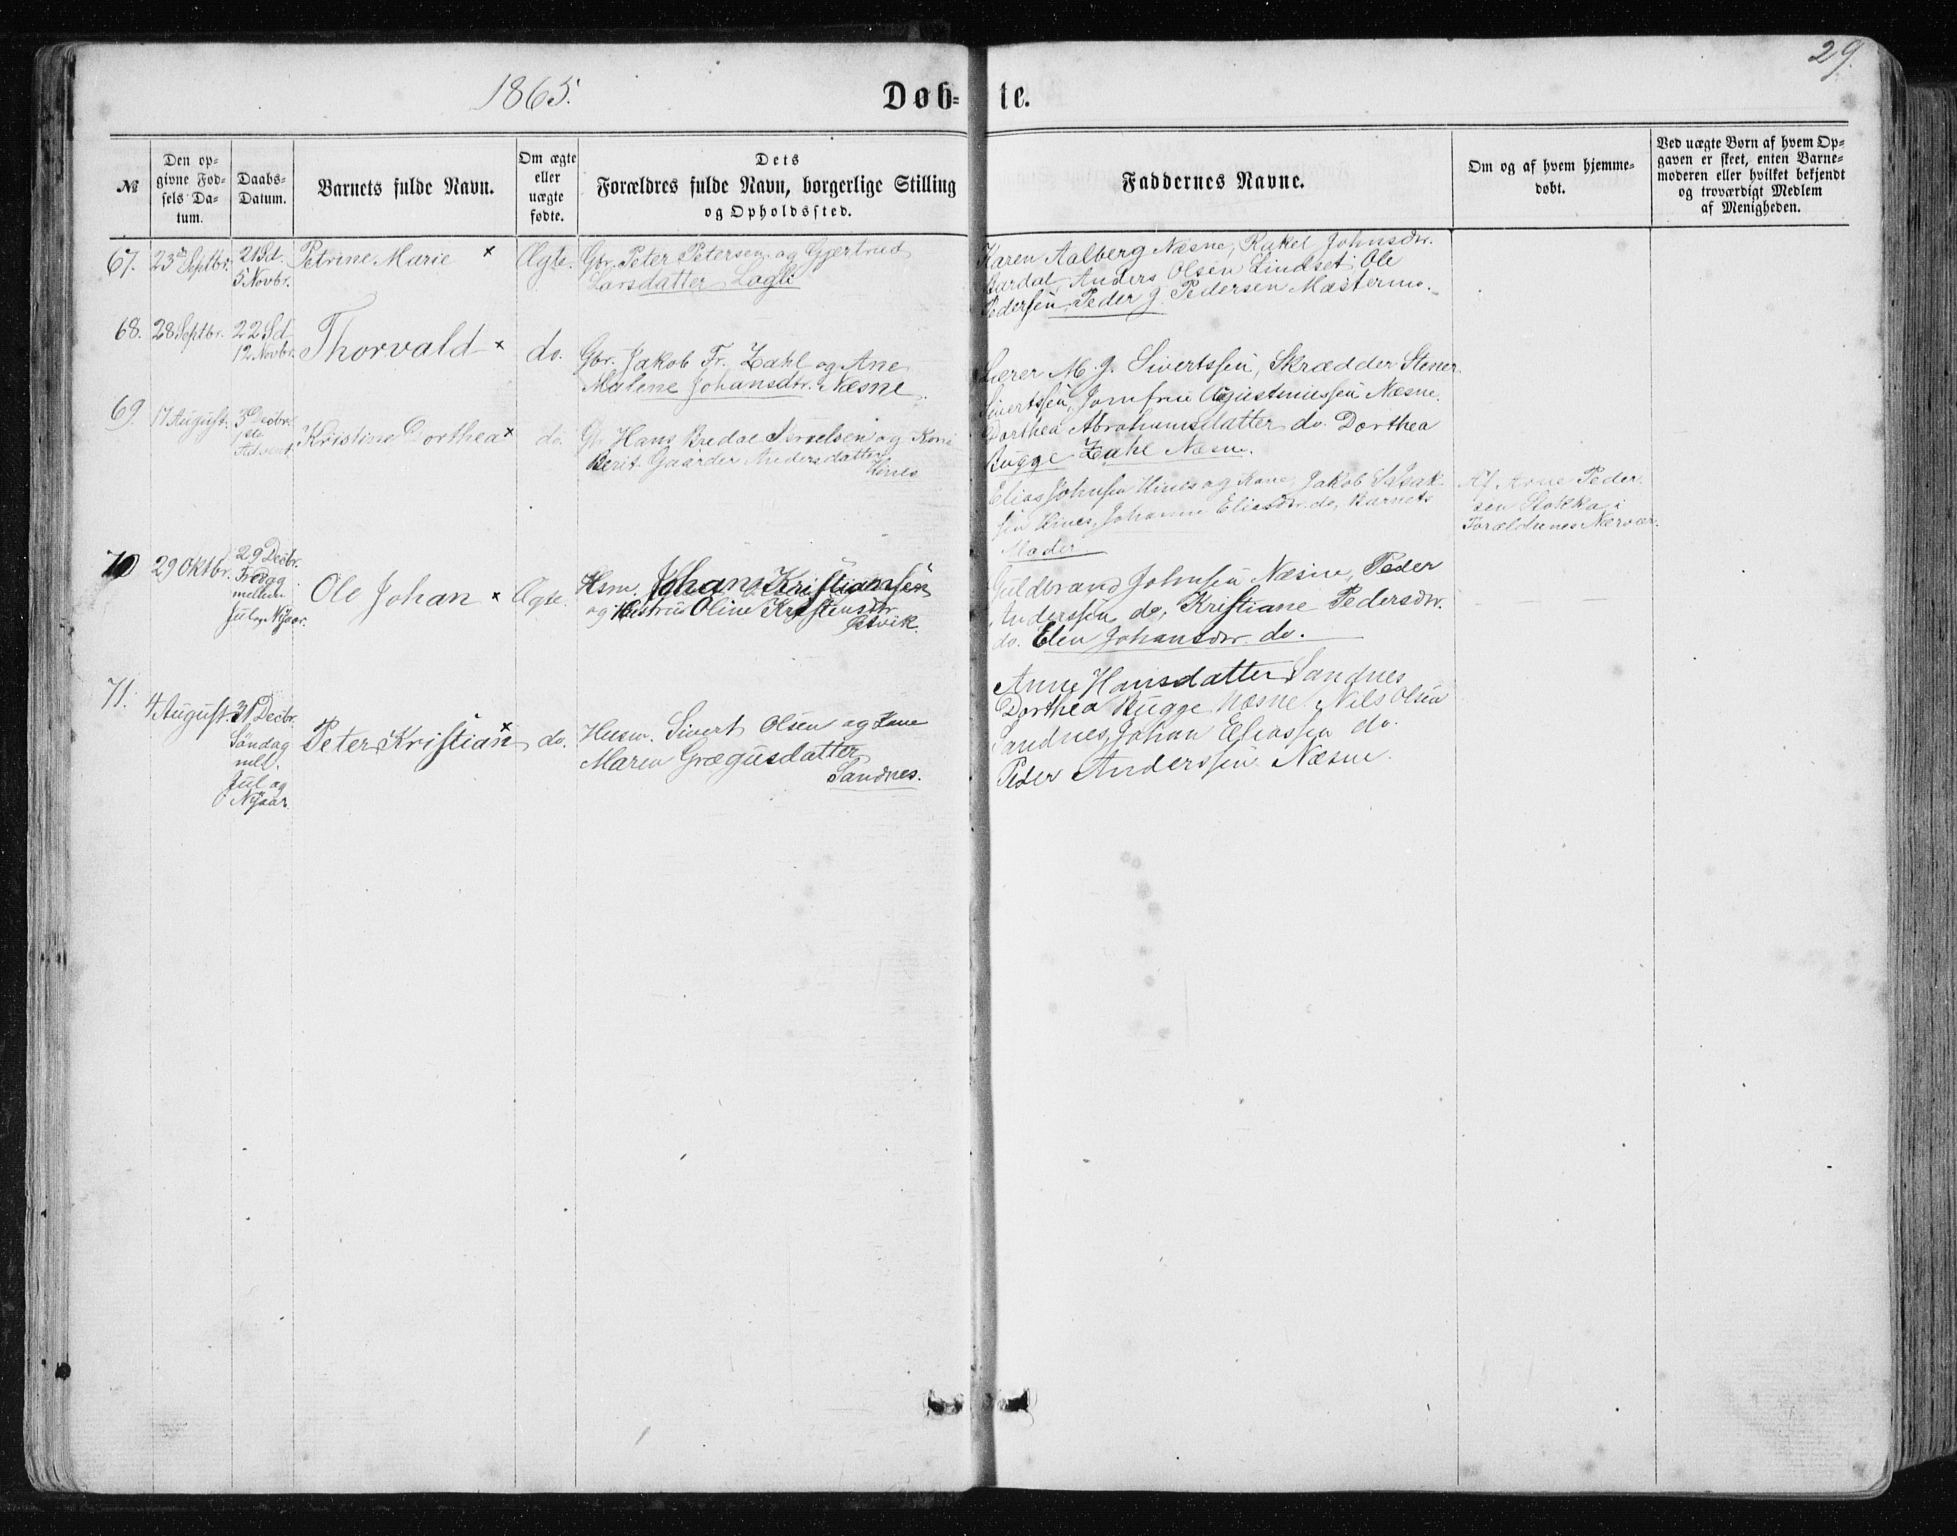 29.
1865.
Døb-
te.
№
Den op-
givne Fød-
sels Da-
tum.
Daabs-
Datum.
Barnets fulde Navn.
Om ægte
eller
uægte
fødte.
Dets
Forældres fulde Navn, borgerlige Stilling
og Opholdssted.
Faddernes Navne.
Om og af hvem hjemme-
døbt.
Ved uægte Børn af hvem Op-
gaven er skeet, enten Barne-
moderen eller hvilket bekjendt
og troværdigt Medlem
af Menigheden.
67.
23de Septbr.
21 Sd.
5 Novbr.
Petrine Marie ×
Ægte.
Gbr. Peter Petersen og Gjertrud
Larsdatter Lagli
Karen Aalberg Næsne, Rakel Johnsdtr.
Aardal, Anders Olsen Lindset, Ole
Pedersen, Peder J. Pedersen Mæstermo.
68.
28 Septbr.
22 Sd.
12 Novbr.
Thorvald ×
do.
Gbr. Jakob Fr. Zahl og Ane
Malene Johansdtr. Næsne.
Lærer M. J. Sivertssen, Skrædder Stener
Sivertssen, Jomfru Agustinussen Næsne.
Dorthea Abrahamsdatter do. Dorthea
Bugge Zahl Næsne.
69.
17 August.
3 Decbr.
1ste
Advent
Kristine Dorthea ×
do.
Hans Bredal Israelsen og Kone
Berit Gaarder Andersdatter
Hines
Elias Johnsen Hines og Kone, Jakob Isak-
sen Hines, Johanne Eliasdtr. do, Barnets
Moder
Af Arne Peder-
sen Stokka i
Forældrenes Nærvær.
70
29 Oktbr.
29 Decbr.
Fredag
mellem
Jul og Nyaar.
Ole Johan ×
Ægte.
Hsm. Johan Kristiansen
og Hustru Oline Kristensdtr.
Østvik.
Guldbrand Johnsen Næsne, Peder
Anderssen do, Kristiane Pedersdtr.
do. Elen Johansdtr. do.
71.
4 August.
31 Decbr.
Søndag
mll.
Jul og
Nyaar.
Peter Kristian ×
do.
Husm. Sivert Olsen og Kone
Maren Grægusdatter
Sandnes.
Anne Hansdatter Sandnes
Dorthea Bugge Næsne. Nils Olsen
Sandnes, Johan Eliassen do.
Peder Anderssen Næsne.